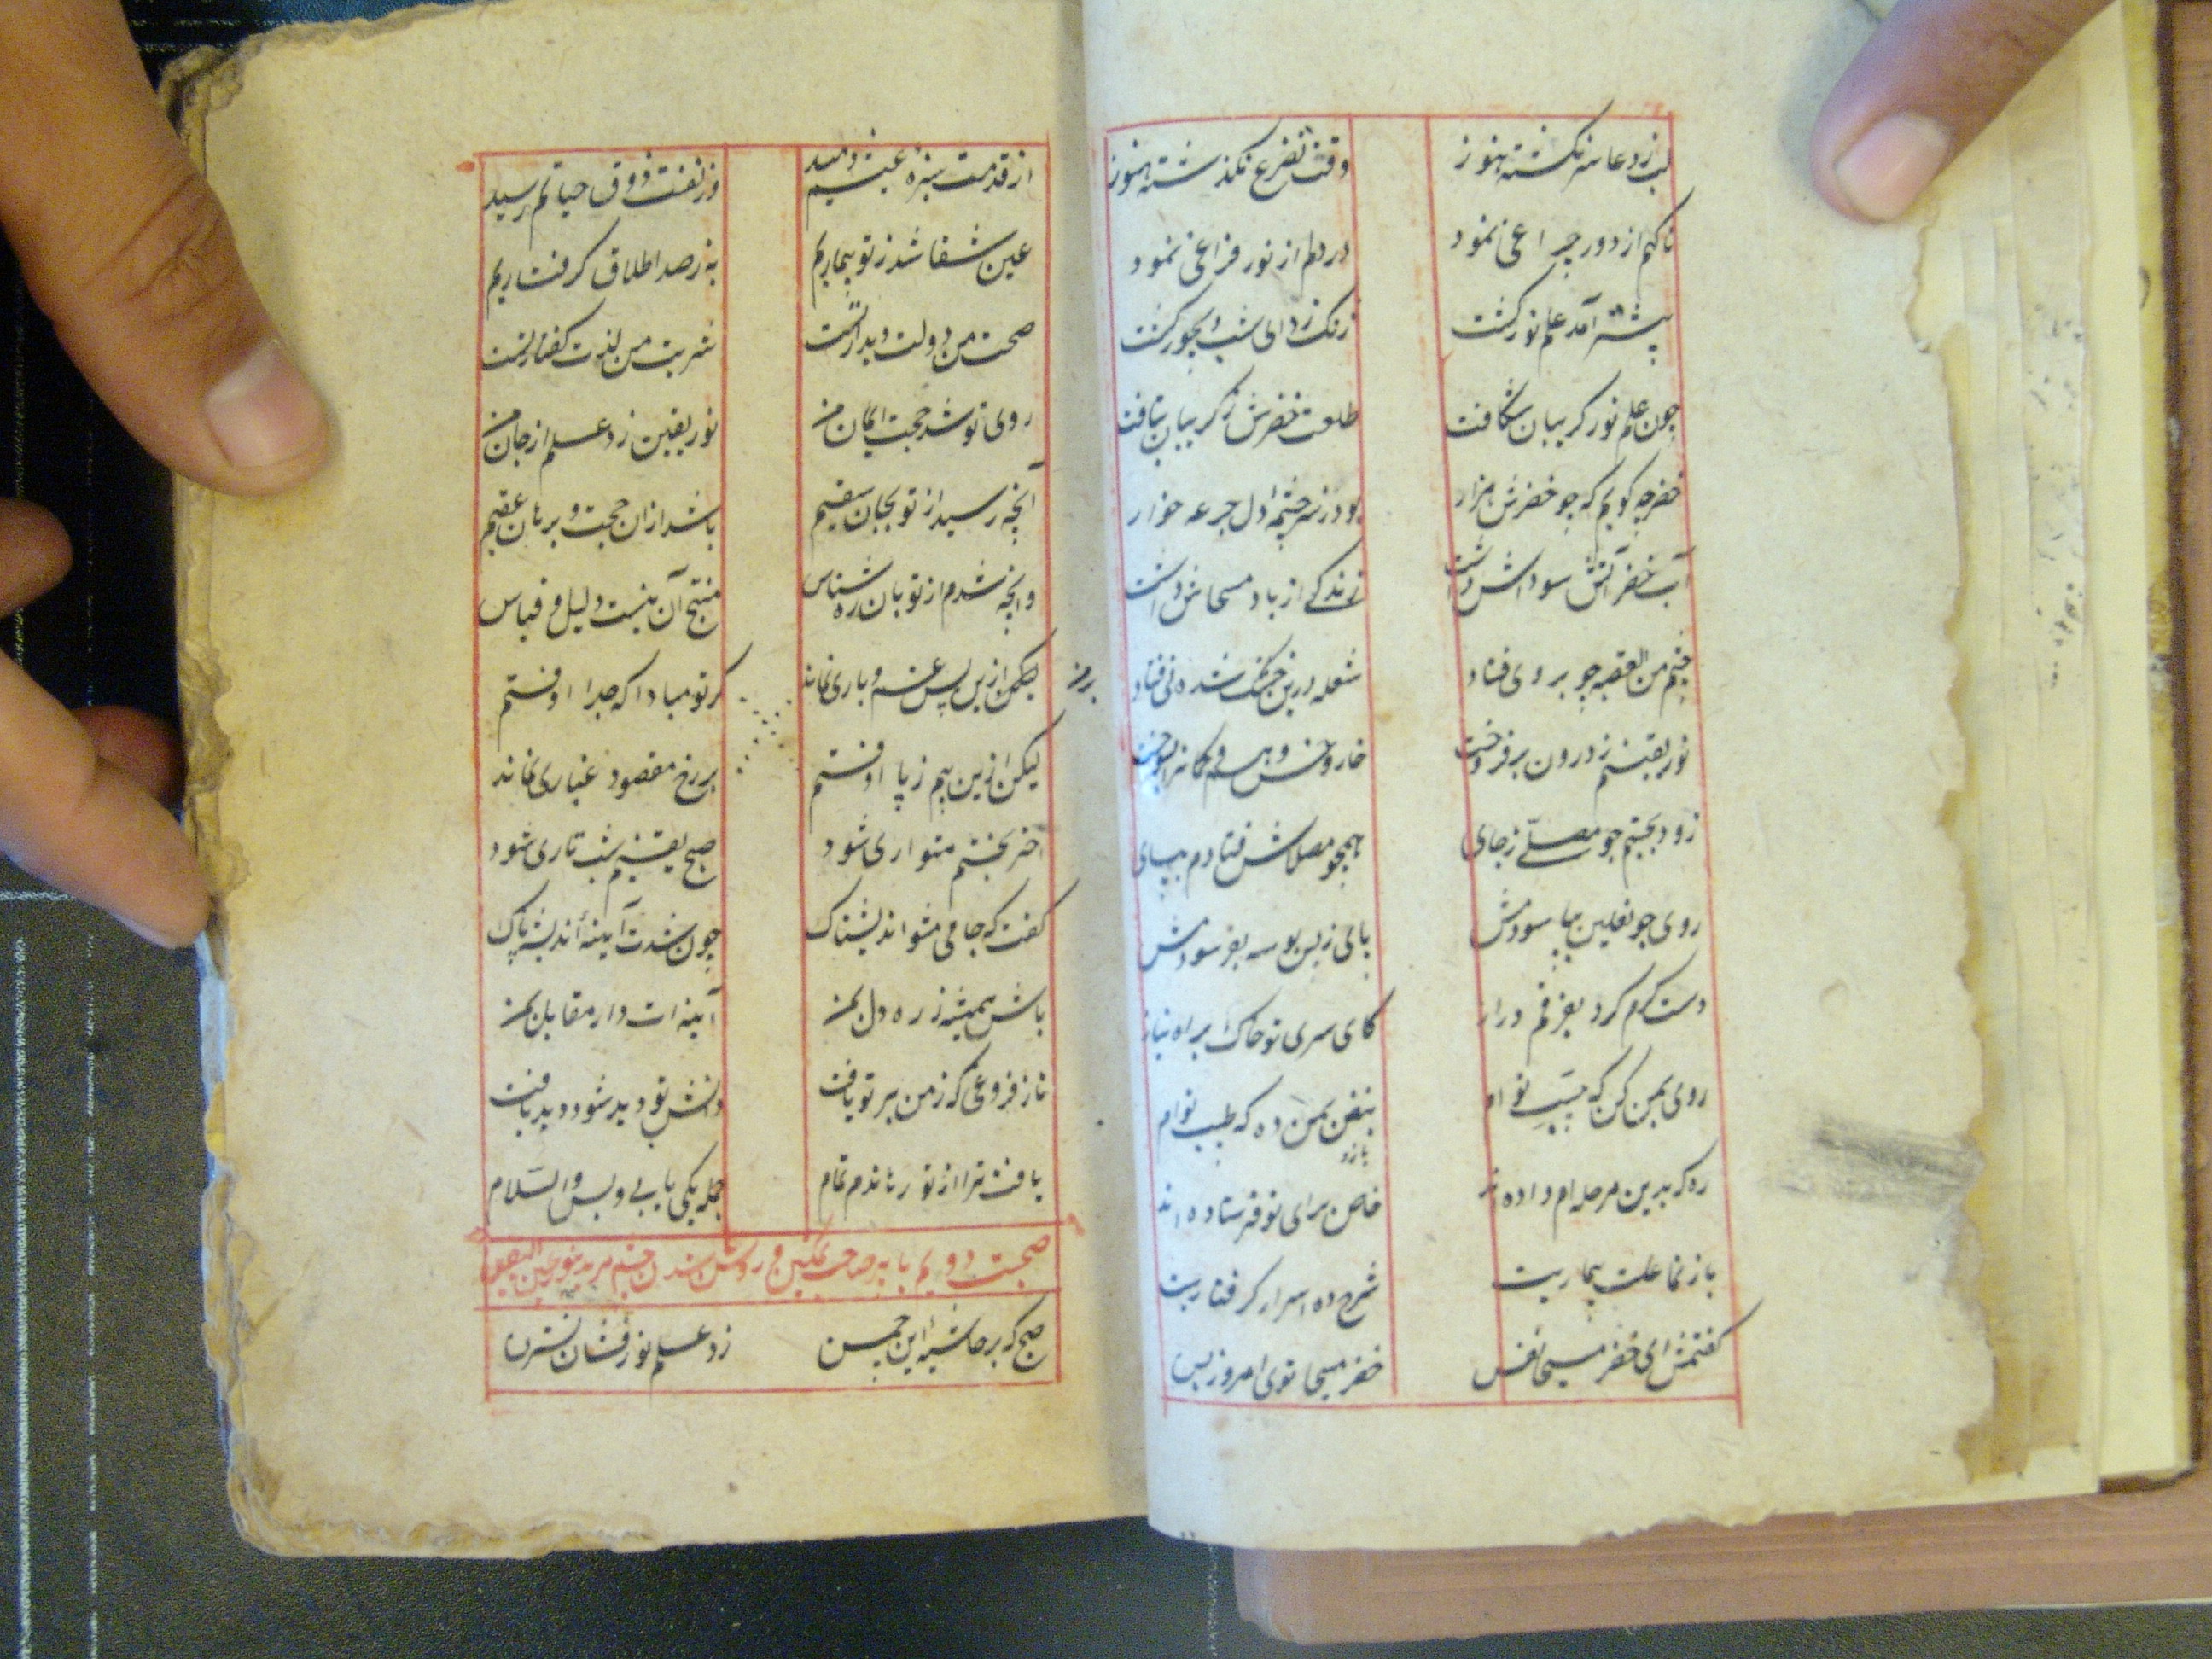 لب ز دعا سر نگشته هنوز وقت تضرع نگذشته هنوز
ناگهم از دور چراغی نمود در دلم از نور فراغی نمود
پیشتر آمد علم نور گشت زنگ زدای شب دیجور گشت
چون علم نور گریبان شکافت طلعت خضرش ز گریبان بتافت
خضر چه گویم که چو خضرش هزار بود ز سرچشمه دل جرعه خوار
آب خضر آتش سوداش داشت زندگی از باد مسیحاش داشت
چشم من القصه چو بر وی فتاد شعله درین خشک شده نی فتاد
نور یقینم ز درون برفروخت خار و خس وهم و گمانرا بسوخت
زود بجستم چو مصلی ز جای همچو مصلاش فتادم بپای
روی چو نعلین بپا سودمش پای زمین بوسه بفرسودمش
دست کرم کرد بفرقم دراز کای سر تو خاک براه نیاز
روی بمن کن که حبیب توام نبض بمن ده که طبیب توام
بازو
ره که بدین مرحله ام داده اند خاص برای تو فرستاده اند
باز نما علت بیماریت شرح ده اسرار گرفتاریت
گفتمش ای خضر مسیحا نفس خضر و مسیحا توی امروز بس
از قدمت سبزه عیشم دمید وز نفست ذوق حیاتم رسید
عین شفا شد ز تو بیماریم به ز صد اطلاق گرفتاریم
صحت من دولت دیدار تست شربت من لذت گفتار تست
روی تو شد حجت ایمان من نور یقین زد علم از جان من
آنچه رسید از تو بجان سقیم باشد ازان حجت و برهان عقیم
وانچه شدم از تو بآن ره شناس منتج آن نیست دلیل و قیاس
لیکن ازین پس غم و باری نماند گر تو مبادا که جدا اوفتم
لیکن ازین بیم ز پا اوفتم بر رخ مقصود غباری نماند
اختر بختم متواری شود صبح یقینم شب تاری شود
گفت که جامی مشو اندیشناک چون شدت آیینه اندیشه پاک
باش همیشه ز ره دل بمن آینه ات دار مقابل بمن
تاز فروغی که ز من بر تو یافت دانش تو دید شود دید یافت
یافت ترا از تو رهاندم تمام جمله یکی یابی و بس والسلام
صحبت دویم با پیر صاحب تمکین و روشن شدن چشم مرید بنور عین الیقین
صبح که بر حاشیه این چمن زد علم نور فشان نسترن